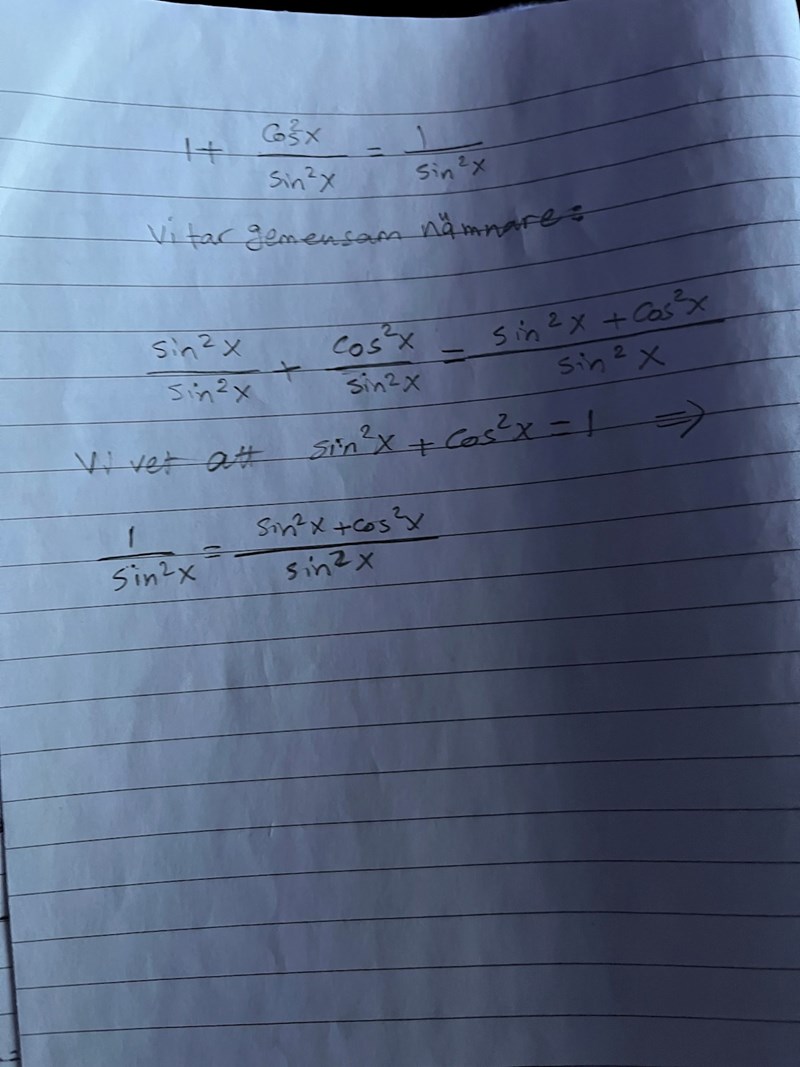 1 + cos²x / sin²x = 1 / sin²x
Vi tar gemensam nämnare:
sin²x / sin²x + cos²x / sin²x = sin²x + cos²x / sin²x
Vi vet att sin²x + cos²x = 1 ⇒
1 / sin²x = sin²x + cos²x / sin²x